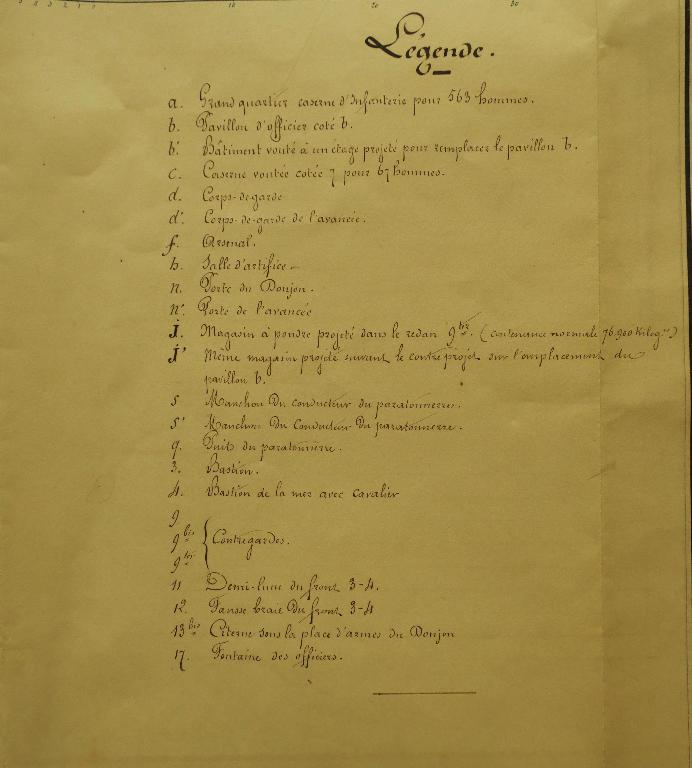 10 20 30
Légende.
a. Grand quartier caserne d'Infanterie pour 563 hommes.
b. Pavillon d'officier coté b.
b'. Bâtiment vouté à un étage projeté pour remplacer le pavillon b.
c. Caserne voutée cotée 7 pour 67 hommes.
d. Corps-de-garde
d'. Corps-de-garde de l'avancée.
f. Arsenal.
h. Salle d'artifice
n. Porte du Donjon.
n'. Porte de l'avancée
J. Magasin à poudre projeté dans le redan 9 ter. (contenance normale 76.900 Kilog.es)
J' Même magasin projeté suivant le contre projet sur l'emplacement du
pavillon b.
s Manchon du conducteur du paratonnerre.
s' Manchon du Conducteur du paratonnerre.
q. Puit du paratonnerre.
3. Bastion.
4. Bastion de la mer avec cavalier
9
9 bis { Contregardes.
9 ter
11 Demi-lune du front 3-4.
12. Fausse braie du front 3-4
13 bis Citerne sous la place d'armes du Donjon
17. Fontaine des officiers.